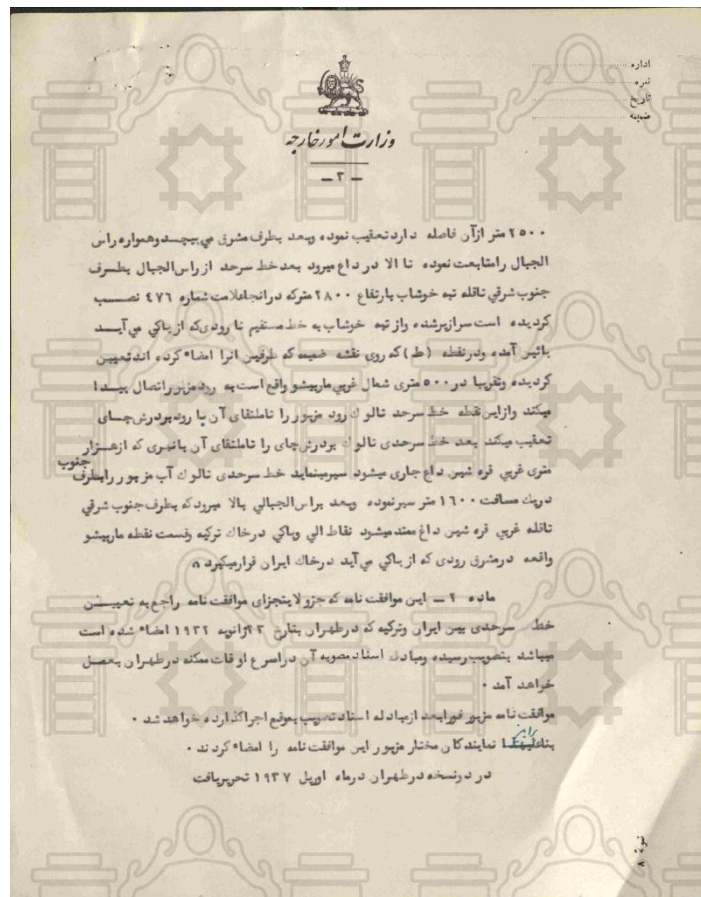 اداره
نمره
تاریخ
ضمیمه
وزارت امور خارجه
ـ ۳ ـ
۲۵۰۰ متر ازآن فاصله دارد تعقیب نموده وبعد بطرف مشرق می پیچد وهمواره راس
الجبال رامتابعت نموده تا الا در داغ میرود بعد خط سرحد از راس الجبال بطرف
جنوب شرقي تاقله تپه خوشاب بارتفاع ۲۸۰۰ مترکه درانجاعلامت شماره ٤٧٦ نصب
گردیده است سرازیرشده واز تپه خوشاب به خط مستقیم تا رودیکه از یاکي می آید
پائین آمده ودرنقطه (ط) که روی نقشه ضمیمه که طرفین انرا امضاء کرده اندتعیین
گردیده وتقریبا در ۵۰۰ متری شمال غربي مارپیشو واقع است به رود مزبور اتصال پیدا
میکند وازاین نقطه خط سرحد تالوك رود مزبور را تاملتقای آن با رود بردرش چای
تعقیب میکند بعد خط سرحدی تالوك بردرش چای را تاملتقای آن بانهری که ازهزار
متری غربي قره شین داغ جاری میشود سیرمینماید خط سرحدی تالوك آب مزبور رابطرف جنوب
دریك مسافت ۱۶۰۰ متر سیرنموده وبعد براس الجبالي بالا میرود که بطرف جنوب شرقي
تاقله غربي قره شین داغ ممتد میشود نقاط الي ویاکي درخاك ترکیه وقسمت نقطه مارپیشو
واقعه درمشرق رودی که از یاکي مي آید درخاك ایران قرارمیگیرد
ماده ۲ ـ این موافقت نامه که جزو لایتجزای موافقت نامه راجع به تعیین
خط سرحدی بین ایران وترکیه که درطهران بتاریخ ۲۳ ژانویه ۱۹۳۲ امضاء شده است
میباشد بتصویب رسیده ومبادله اسناد مصوبه آن دراسرع اوقات ممکنه درطهران بعمل
خواهد آمد ۰
موافقت نامه مزبور فورابعد ازمبادله اسناد تصویب بموقع اجراگذارده خواهد شد ۰
بنابراین نمایندگان مختار مزبور این موافقت نامه را امضاء کردند ۰
در دونسخه درطهران درماه اوریل ۱۹۳۷ تحریریافت